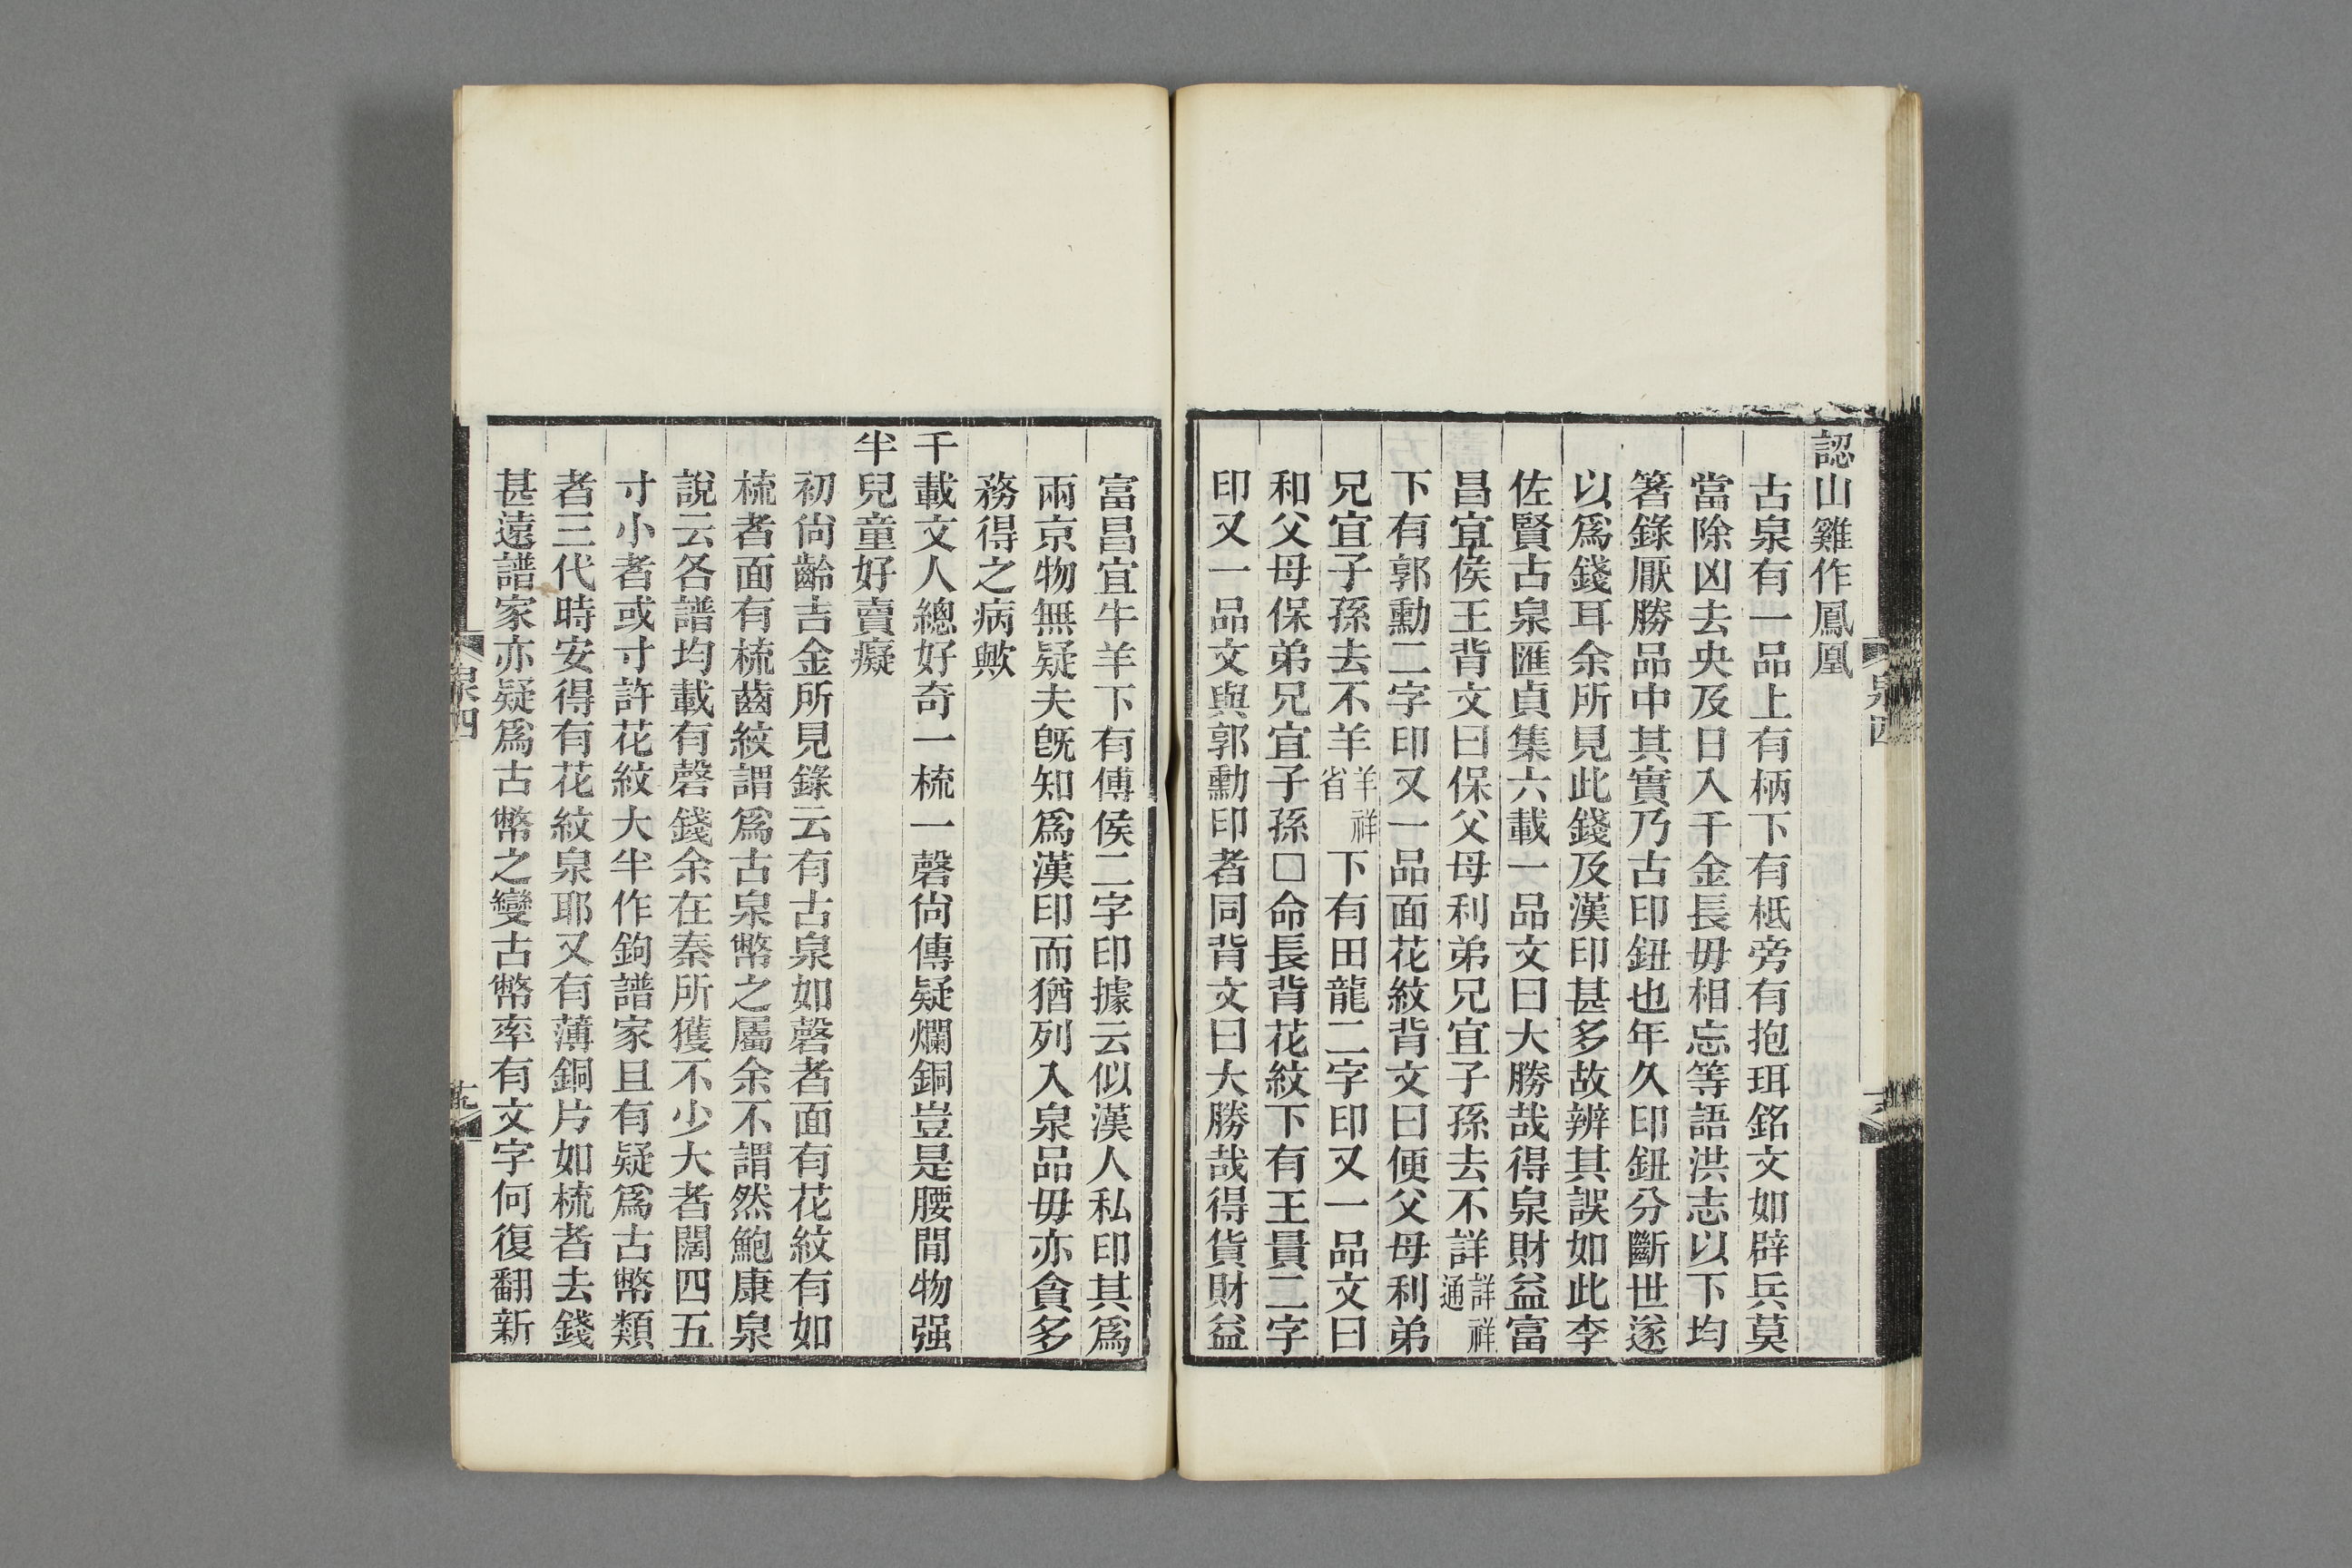 認山雞作鳳凰
古泉有一品上有柄下有柢旁有抱珥銘文如辟兵莫
當除凶去央及日入千金長毋相忘等語洪志以下均
箸錄厭勝品中其實乃古印鈕也年久印鈕分斷世遂
以爲錢耳余所見此錢及漢印甚多故辨其誤如此李
佐賢古泉匯貞集六載一品文曰大勝哉得泉財益富
昌宜侯王背文曰保父母利弟兄宜子孫去不詳詳祥通
下有郭勳二字印又一品面花紋背文曰便父母利弟
兄宜子孫去不羊羊祥省下有田龍二字印又一品文曰
和父母保弟兄宜子孫□命長背花紋下有王量二字
印又一品文與郭勳印者同背文曰大勝哉得貨財益
泉四
富昌宜牛羊下有傅侯二字印據云似漢人私印其爲
兩京物無疑夫旣知爲漢印而猶列入泉品毋亦貪多
務得之病歟
千載文人總好奇一梳一磬尙傳疑爛銅豈是腰閒物强
半兒童好賣癡
初尙齡吉金所見錄云有古泉如磬者面有花紋有如
梳者面有梳齒紋謂爲古泉幣之屬余不謂然鮑康泉
說云各譜均載有磬錢余在秦所獲不少大者闊四五
寸小者或寸許花紋大半作鉤譜家且有疑爲古幣類
者三代時安得有花紋泉耶又有薄銅片如梳者去錢
甚遠譜家亦疑爲古幣之變古幣率有文字何復翻新
泉四